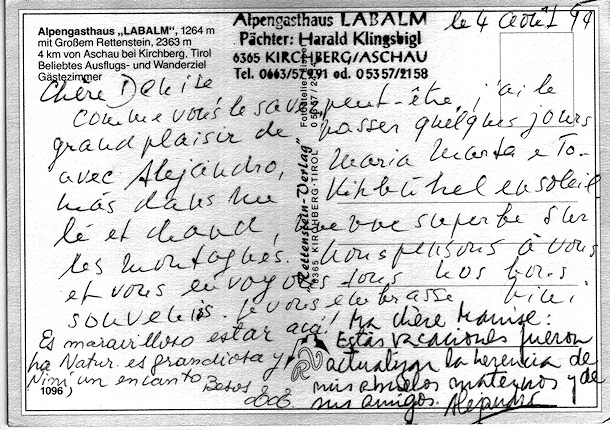 Alpengasthaus „LABALM“, 1264 m
mit Großem Rettenstein, 2363 m
4 km von Aschau bei Kirchberg, Tirol
Beliebtes Ausflugs- und Wanderziel
Gästezimmer
Alpengasthaus LABALM
Pächter: Harald Klingsbigl
6365 KIRCHBERG/ASCHAU
Tel. 0663/57991 od. 05357/2158
le 4 août 94
Chère Denise
Comme vous le savez peut-être, j'ai le
grand plaisir de passer quelques jours
avec Alejandro, Maria Marta e To-
más dans Kitzbühel ensoleil
lé et chaud, vue superbe sur
les montagnes. Nous pensons à vous
et vous envoyons tous nos bons
souvenirs. Je vous embrasse Nini
Es maravilloso estar acá!
la Natur. es grandiosa y
Nini un encanto Besos
Ma chère
Estas vacaciones fueron
actualizar la herencia de
mis abuelos maternos y de
sus amigos. Alejandro
"Rettenstein-Verlag"
6365 KIRCHBERG-TIROL
1096